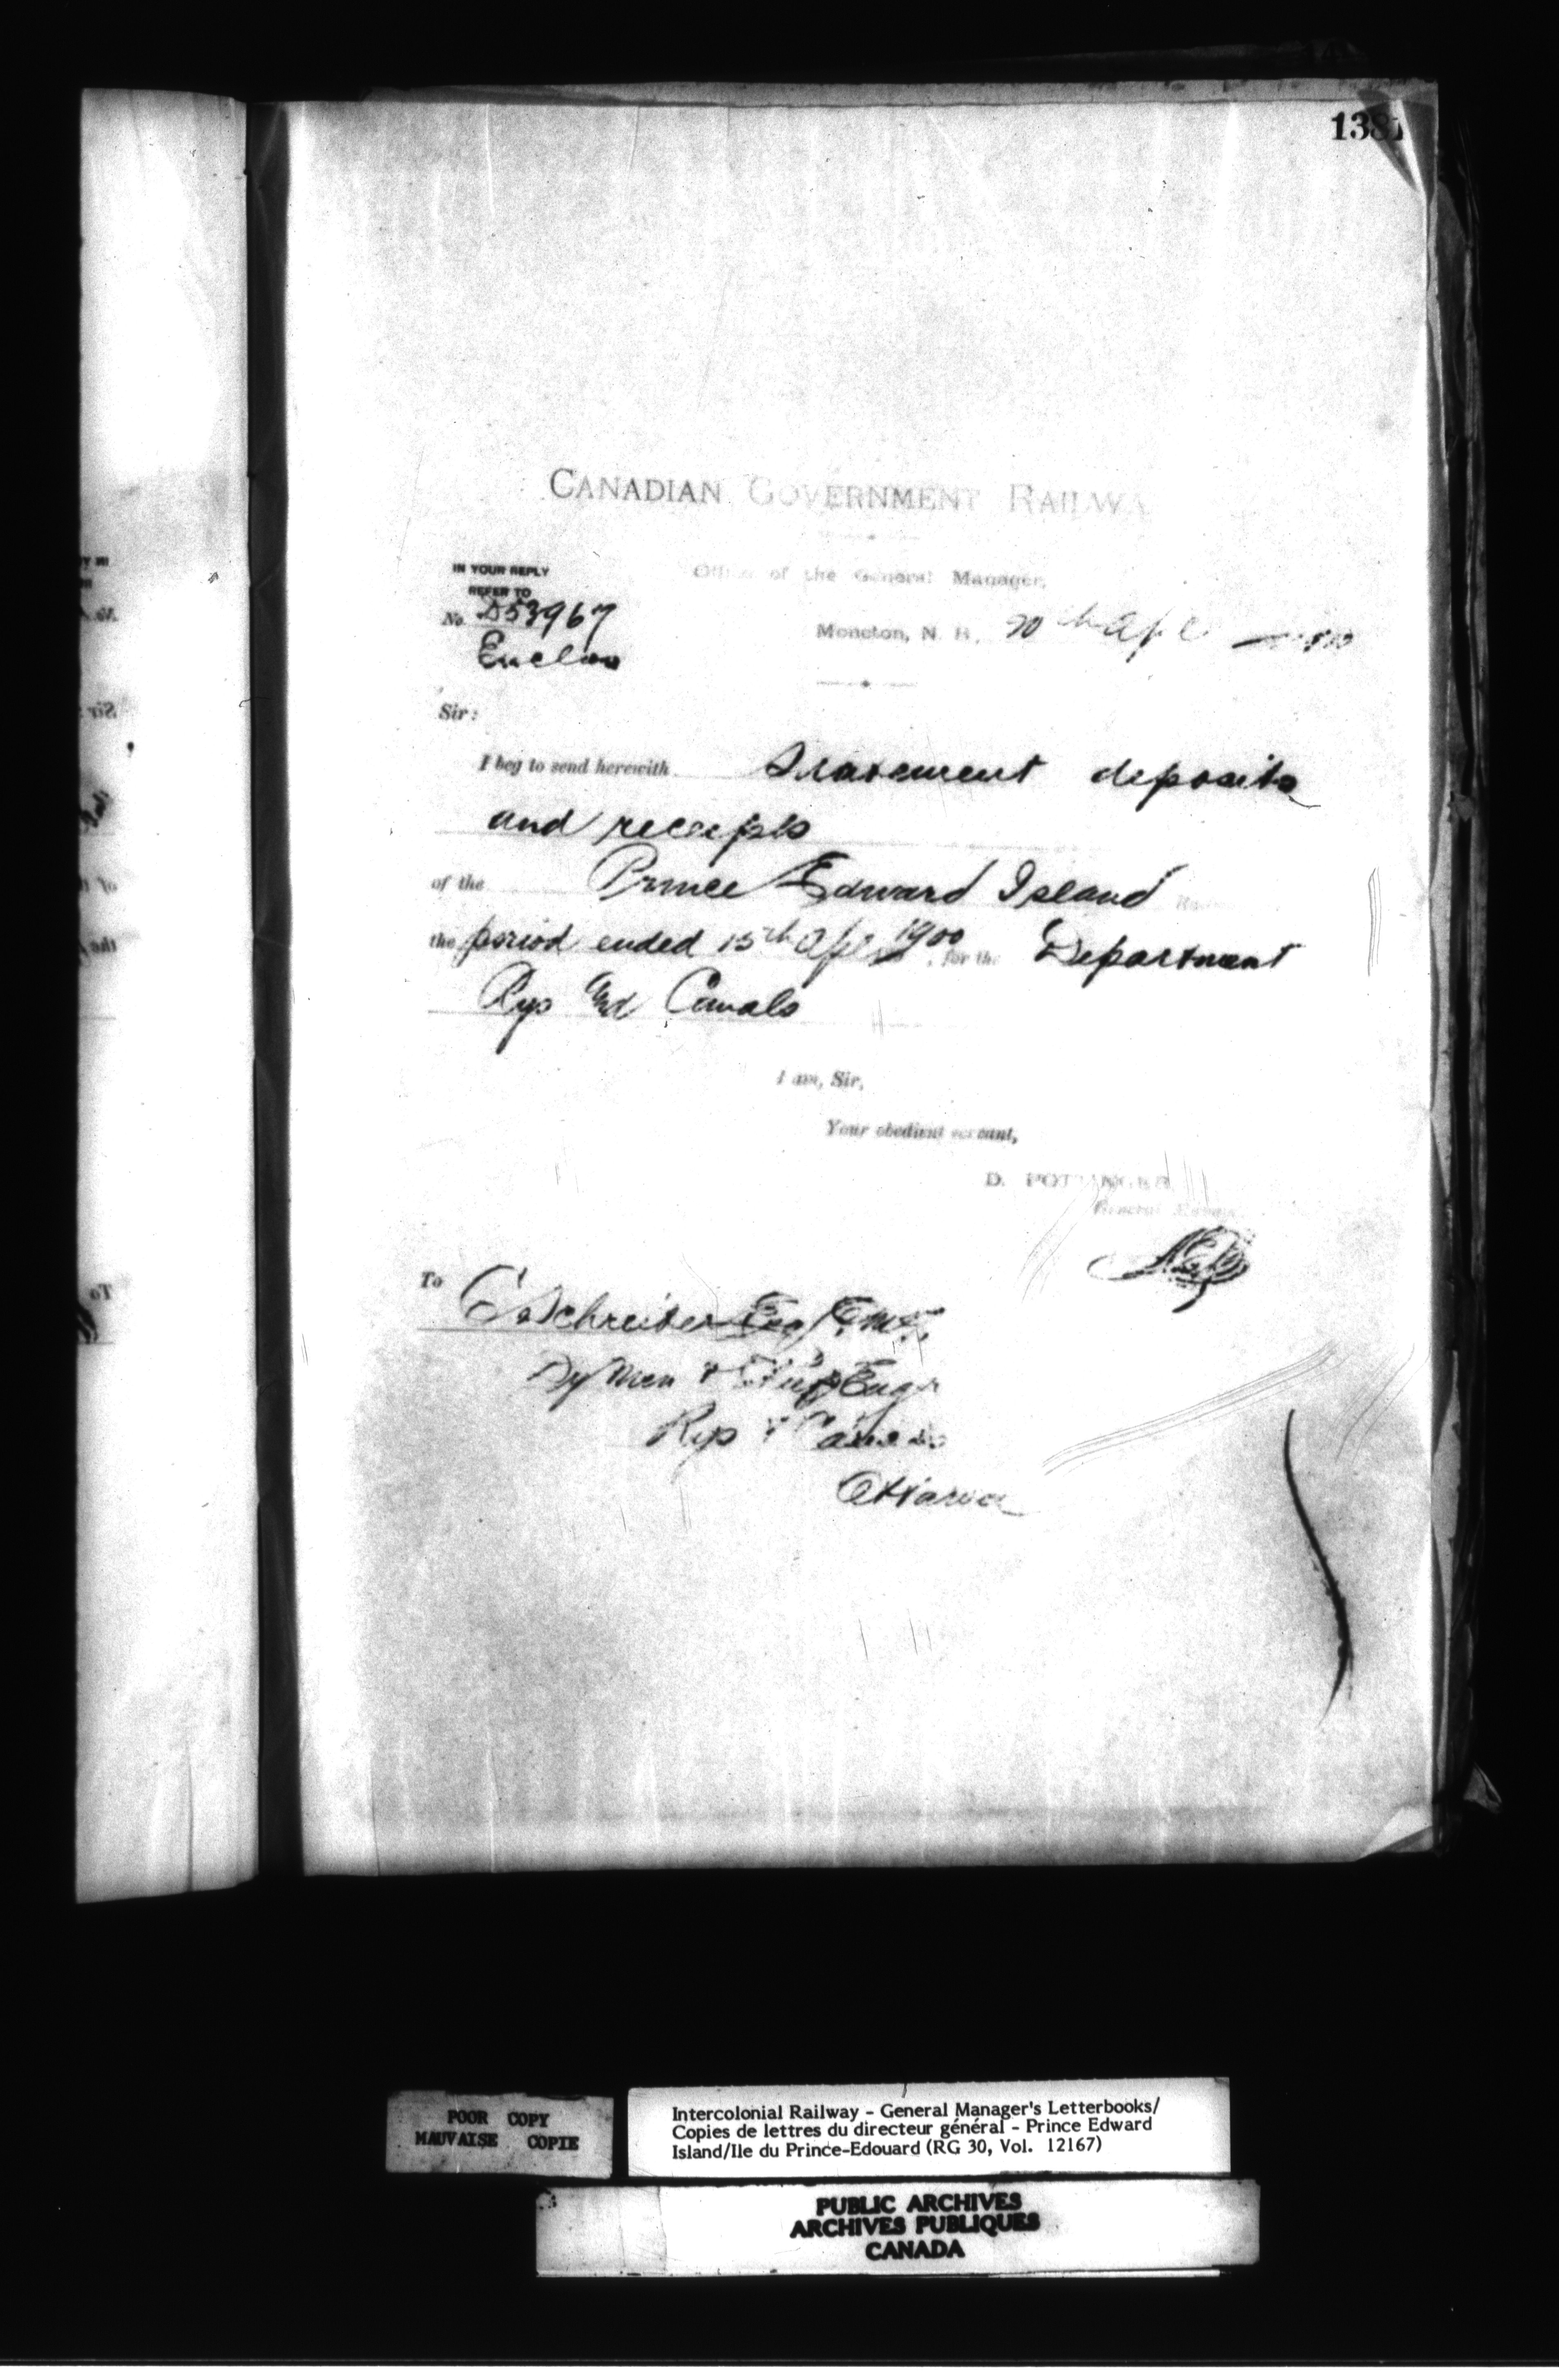 138
CANADIAN GOVERNMENT RAILWA
IN YOUR REPLY
REFER TO
Office of the General Manager,
No. D53967
Moncton, N. B., 20th Apl 1900
Enclos
Sir:
I beg to send herewith Statement deposits
and receipts
of the Prince Edward Island
the period ended 15th Apl 1900, for the Department
Rys and Canals
I am, Sir,
Your obedient servant,
D. POTTINGER
General Manager
To C Schreiber Esq C.M.G.
Dy Min & Chief Engr
Rys & Canals
Ottawa
POOR COPY
MAUVAISE COPIE
Intercolonial Railway - General Manager's Letterbooks/
Copies de lettres du directeur général - Prince Edward
Island/Ile du Prince-Edouard (RG 30, Vol. 12167)
PUBLIC ARCHIVES
ARCHIVES PUBLIQUES
CANADA